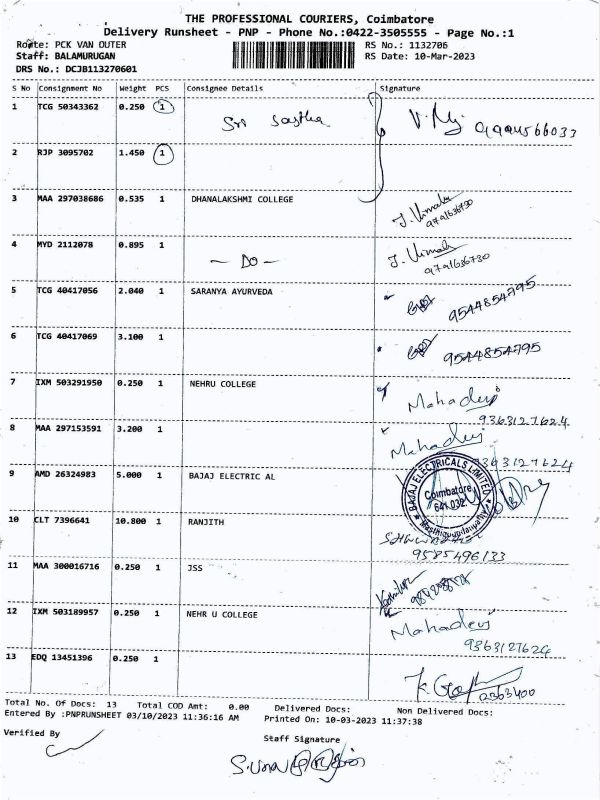 THE PROFESSIONAL COURIERS, Coimbatore
Delivery Runsheet - PNP - Phone No.:0422-3505555 - Page No.:1
Route: PCK VAN OUTER RS No.: 1132706
Staff: BALAMURUGAN RS Date: 10-Mar-2023
DRS No.: DCJB113270601
S No Consignment No Weight PCS Consignee Details Signature
1 TCG 50343362 0.250 1 Sri Sastha
2 RJP 3095702 1.450 1
3 MAA 297038686 0.535 1 DHANALAKSHMI COLLEGE J. Vimala 9791686730
4 MYD 2112078 0.895 1 - DO - J. Vimala 9791686730
5 TCG 40417056 2.040 1 SARANYA AYURVEDA 9544854795
6 TCG 40417069 3.100 1 9544854795
7 IXM 503291950 0.250 1 NEHRU COLLEGE Mahadevi 9363127624
8 MAA 297153591 3.200 1 Mahadevi 9363127624
9 AMD 26324983 5.000 1 BAJAJ ELECTRIC AL BAJAJ ELECTRICALS LIMITED Coimbatore 641 032
10 CLT 7396641 10.800 1 RANJITH 9585496133
11 MAA 300016716 0.250 1 JSS
12 IXM 503189957 0.250 1 NEHR U COLLEGE Mahadevi 9363127624
13 EDQ 13451396 0.250 1
Total No. Of Docs: 13 Total COD Amt: 0.00 Delivered Docs: Non Delivered Docs:
Entered By :PNPRUNSHEET 03/10/2023 11:36:16 AM Printed On: 10-03-2023 11:37:38
Verified By Staff Signature